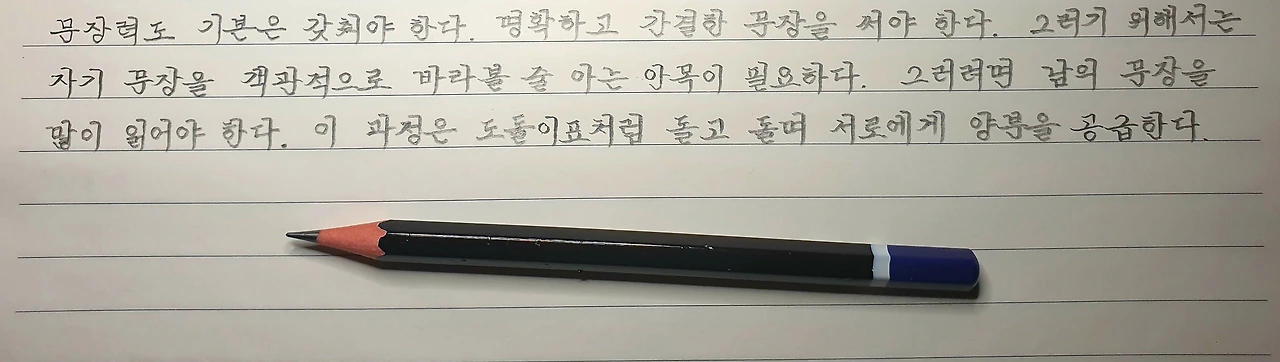 문장력도 기본은 갖춰야 한다. 명확하고 간결한 문장을 써야 한다. 그러기 위해서는
자기 문장을 객관적으로 바라볼 줄 아는 안목이 필요하다. 그러려면 남의 문장을
많이 읽어야 한다. 이 과정은 도돌이표처럼 돌고 돌며 서로에게 양분을 공급한다.